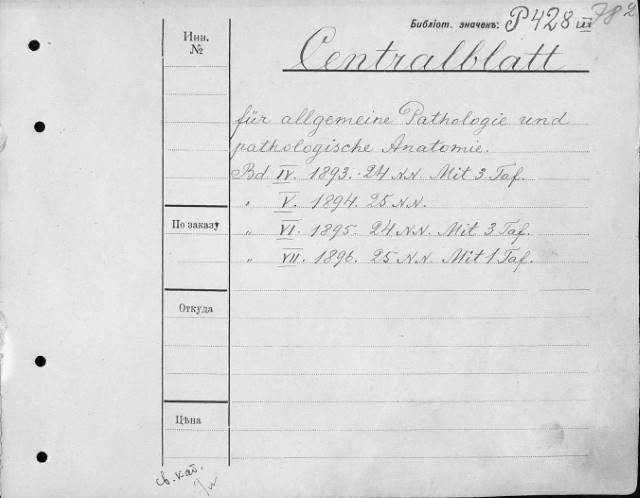 Библіот. значекъ: P 428 III 782
Инв.
№
Centralblatt
für allgemeine Pathologie und
pathologische Anatomie.
Bd IV. 1893. 24 N.N. Mit 3 Taf.
„ V. 1894. 25 N.N.
По заказу
„ VI. 1895. 24 N.N. Mit 3 Taf.
„ VII. 1896. 25 N.N. Mit 1 Taf.
Откуда
Цѣна
св. кат.